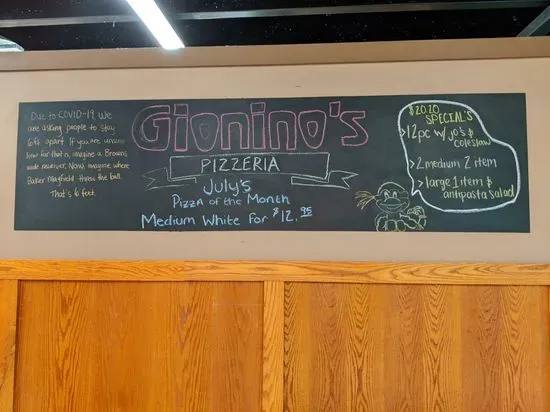 Due to COVID-19, We
are asking people to stay
6ft apart. If you are unsure
how far that is, imagine a Browns
wide receiver. Now, imagine where
Baker Mayfield threw the ball.
That's 6 feet.
Gionino's
PIZZERIA
July's
Pizza of the Month
Medium White for $12.95
$20.20
SPECIAL'S
>12pc w/ jo's &
coleslaw
>2 medium 2 item
>large 1 item &
antipasta salad